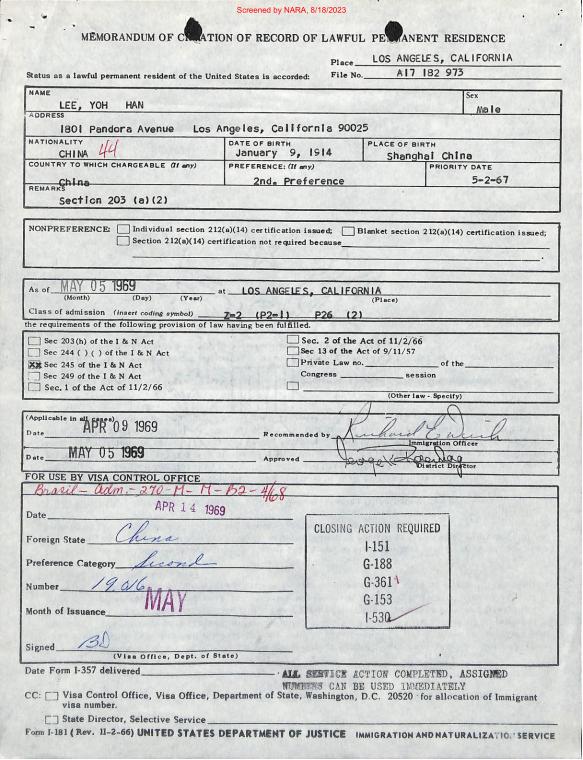 Screened by NARA, 8/18/2023
MEMORANDUM OF CREATION OF RECORD OF LAWFUL PERMANENT RESIDENCE
Place LOS ANGELES, CALIFORNIA
Status as a lawful permanent resident of the United States is accorded: File No. A17 182 973
NAME Sex
LEE, YOH HAN Male
ADDRESS
1801 Pandora Avenue Los Angeles, California 90025
NATIONALITY DATE OF BIRTH PLACE OF BIRTH
CHINA 44 January 9, 1914 Shanghai China
COUNTRY TO WHICH CHARGEABLE (If any) PREFERENCE: (If any) PRIORITY DATE
China 2nd. Preference 5-2-67
REMARKS
Section 203 (a)(2)
NONPREFERENCE: Individual section 212(a)(14) certification issued; Blanket section 212(a)(14) certification issued;
Section 212(a)(14) certification not required because
As of MAY 05 1969 at LOS ANGELES, CALIFORNIA
(Month) (Day) (Year) (Place)
Class of admission (insert coding symbol) Z=2 (P2-1) P26 (2)
the requirements of the following provision of law having been fulfilled.
Sec 203(h) of the I & N Act Sec. 2 of the Act of 11/2/66
Sec 244 ( ) ( ) of the I & N Act Sec 13 of the Act of 9/11/57
XX Sec 245 of the I & N Act Private Law no. of the
Sec 249 of the I & N Act Congress session
Sec. 1 of the Act of 11/2/66
(Other law - Specify)
(Applicable in all cases)
Date APR 09 1969 Recommended by
Immigration Officer
Date MAY 05 1969 Approved
District Director
FOR USE BY VISA CONTROL OFFICE
Brasil - Adm. - 270 - M - M - B2 - 4/68
Date APR 14 1969
CLOSING ACTION REQUIRED
I-151
G-188
G-361
G-153
I-530
Foreign State China
Preference Category Second
Number 19016
Month of Issuance MAY
Signed BD
(Visa Office, Dept. of State)
Date Form I-357 delivered ALL SERVICE ACTION COMPLETED, ASSIGNED
NUMBERS CAN BE USED IMMEDIATELY
CC: Visa Control Office, Visa Office, Department of State, Washington, D.C. 20520 for allocation of Immigrant
visa number.
State Director, Selective Service
Form I-181 (Rev. 11-2-66) UNITED STATES DEPARTMENT OF JUSTICE IMMIGRATION AND NATURALIZATION SERVICE